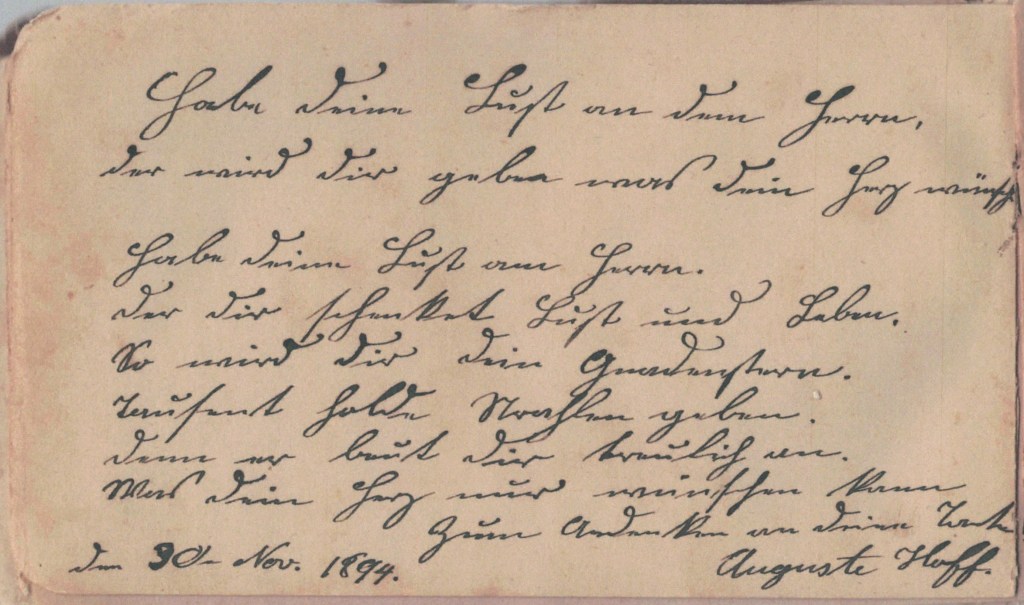 Habe deine Lust an dem Herrn,
der wird dir geben was dein Herz wünsch
Habe deine Lust am Herrn.
Der dir schenket Lust und Leben.
So wird dir dein Gnadenstern.
Tausent holde Strahlen geben.
denn er beut dir treulich an.
Was dein Herz nur wünschen kann
Zum Andenken an deine Tante
den 30. Nov. 1894. Auguste Hoff.